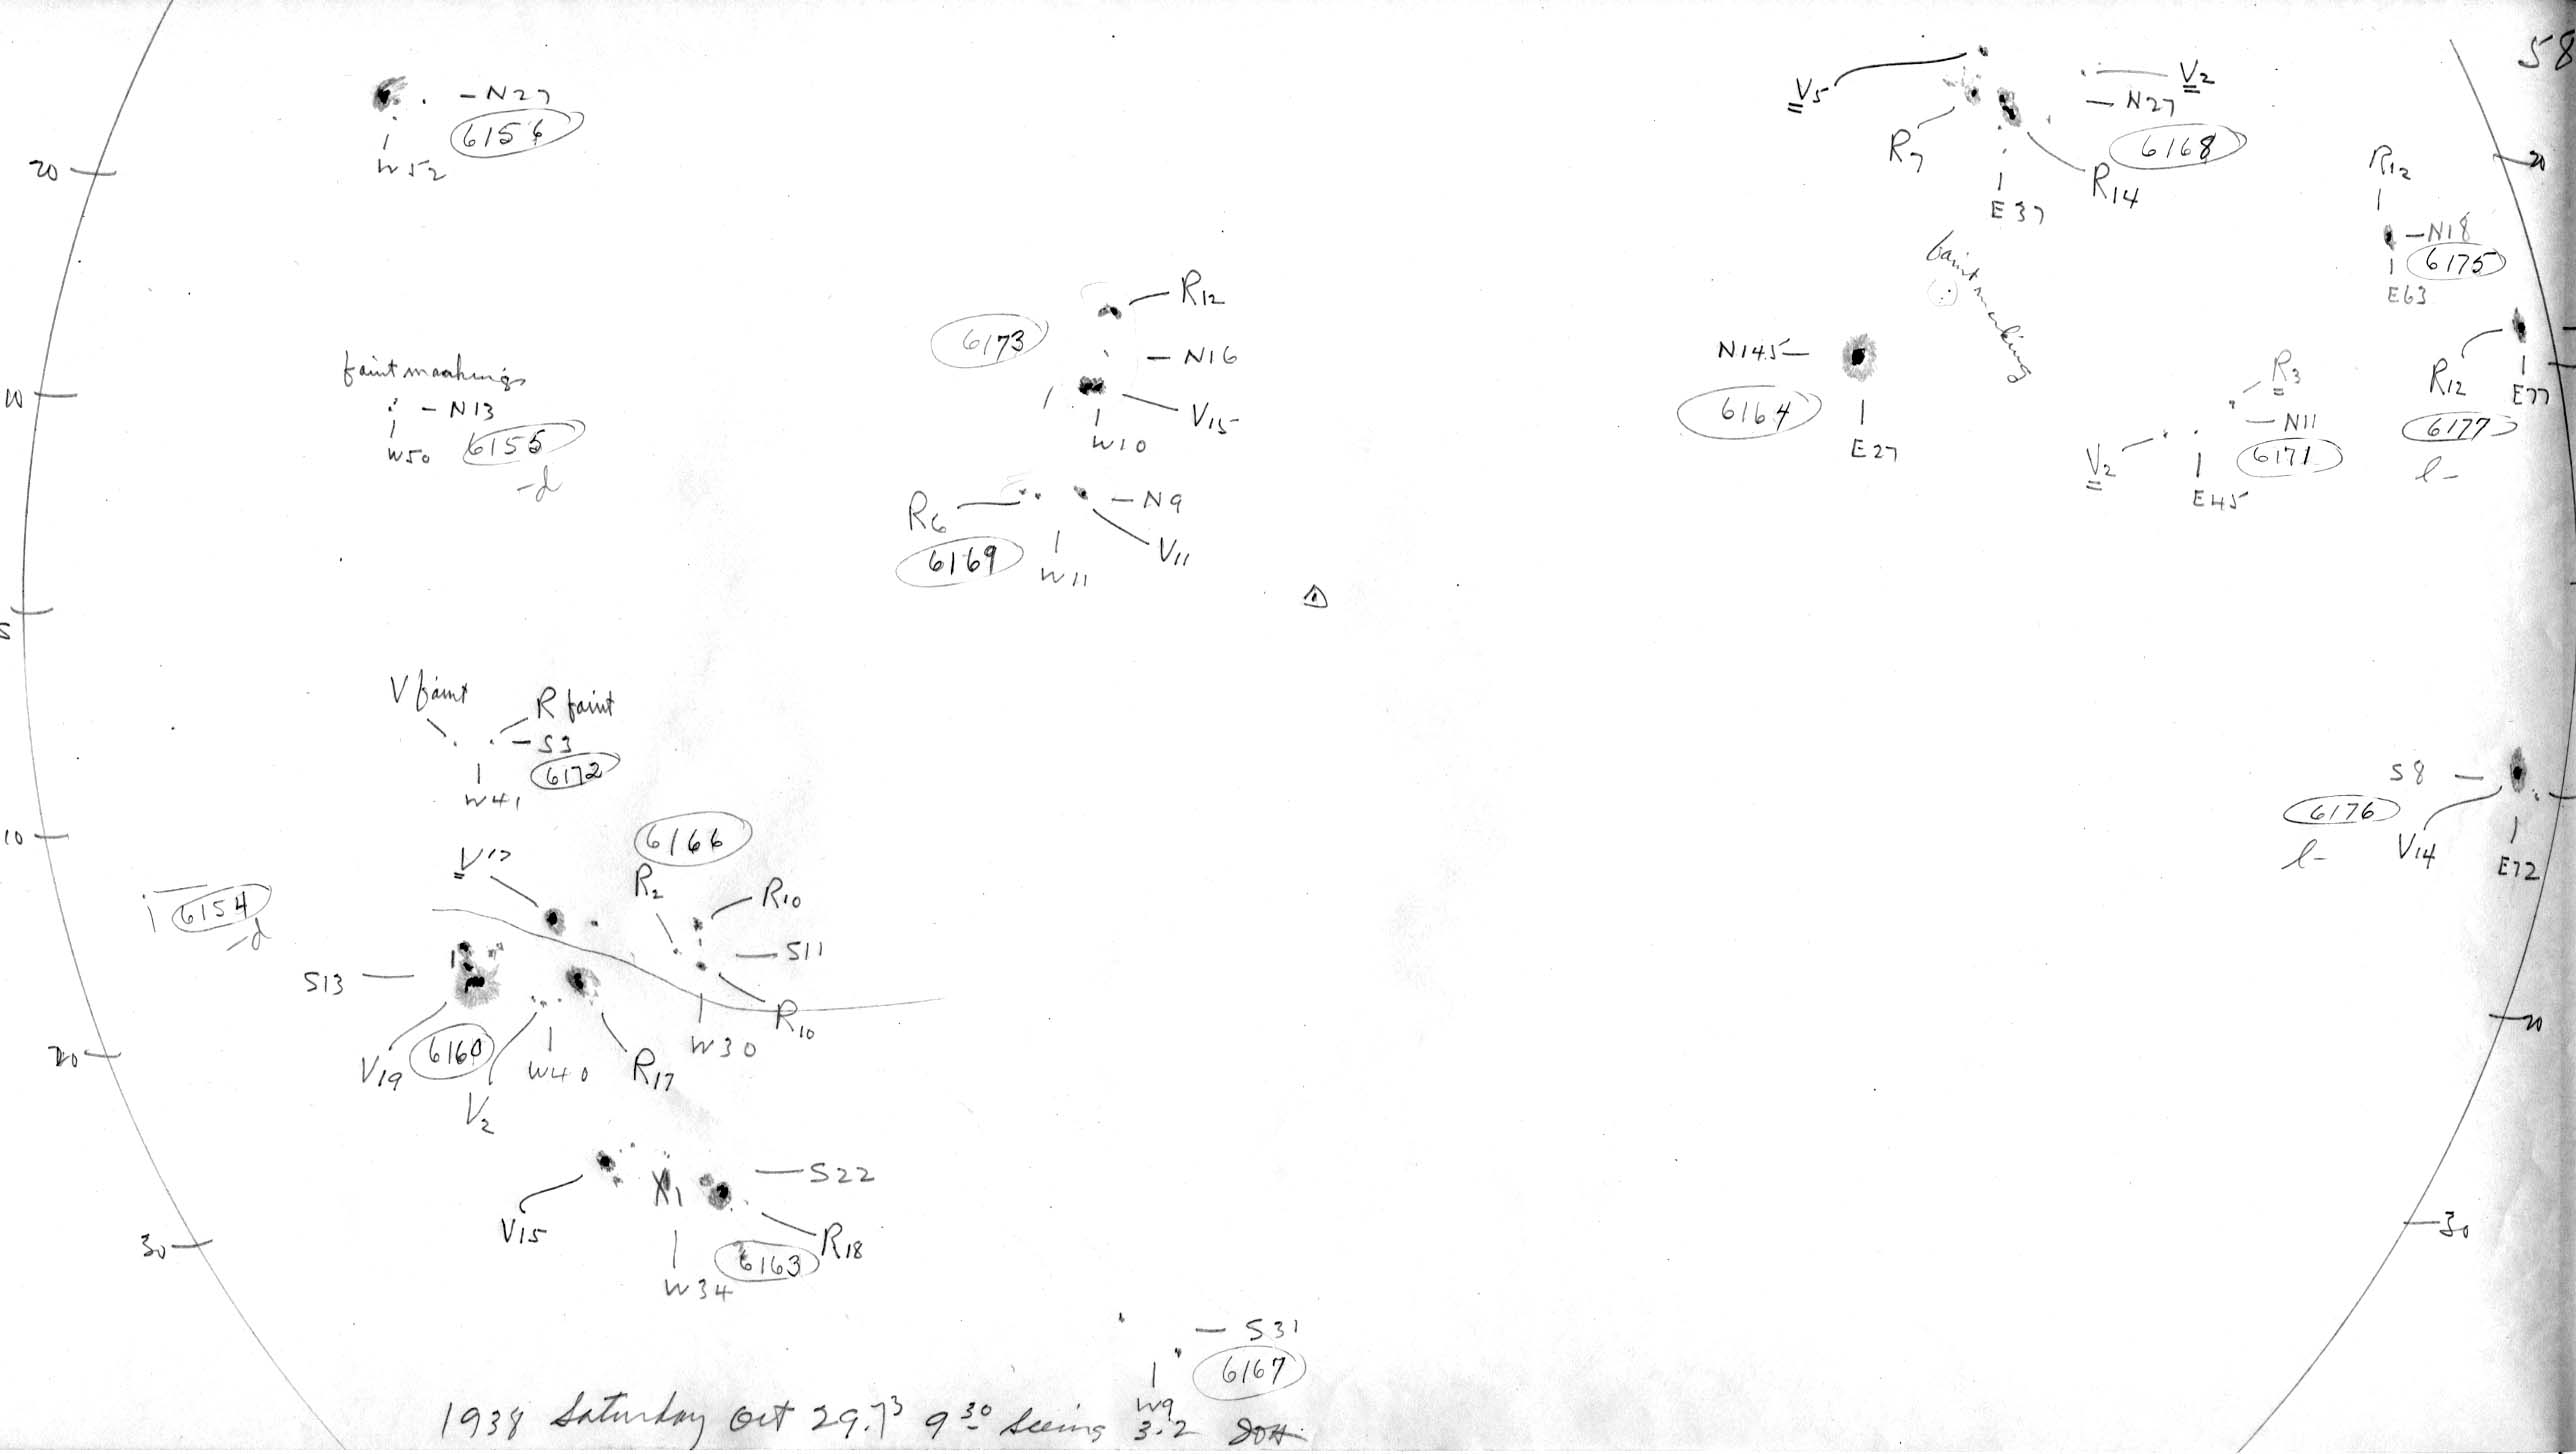 58
-N27
6156
W52
20
V5
V2
-N27
6168
R7
R14
E37
20
R12
-N18
6175
E63
faint marking
R12
6173
-N16
V15
W10
faint markings
-N13
W50
6155
-d
10
N14.5-
6164
E27
R12
E77
6177
l-
R3
-N11
6171
V2
E45
R6
-N9
6169
W11
V11
V faint
R faint
-S3
6172
W41
10
6166
V17
R2
R10
-S11
R10
W30
6154
-d
S13
V19
6160
V2
W40
R17
20
S8-
6176
l-
V14
E72
20
-S22
V15
X1
R18
6163
W34
30
30
-S31
6167
W9
1938 Saturday Oct 29.73 9 30 Seeing 3.2